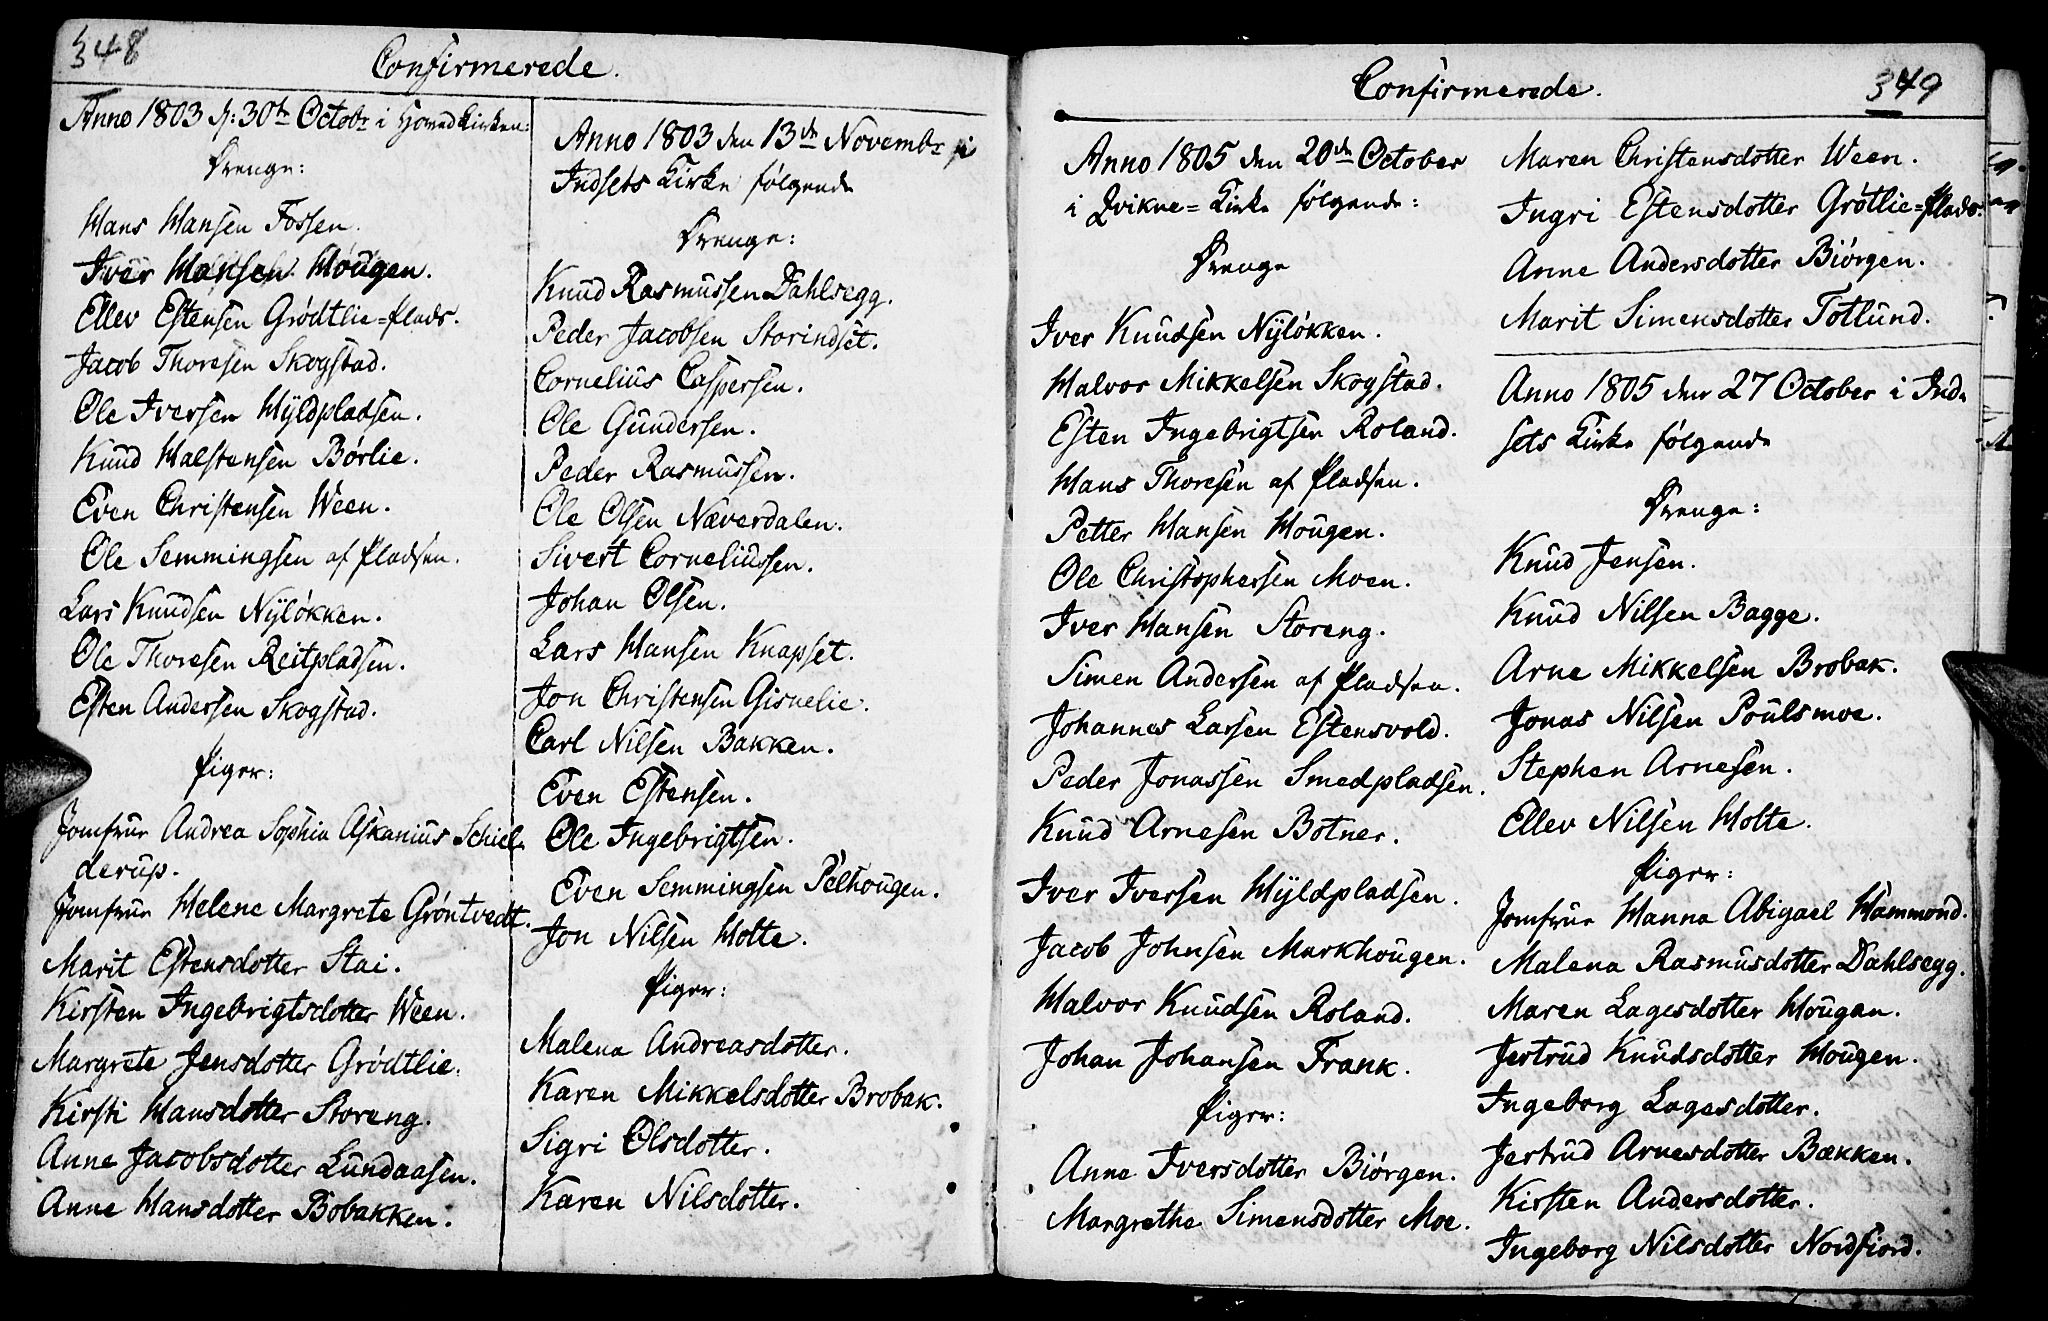 348
Confirmerede.
Anno 1803 d: 30te Octobr i Hoved Kirken:
Drenge:
Hans Hansen Fossen.
Iver Hansen Hougen.
Ellev Estensen Grødtlie=Plads.
Jacob Thoresen Skogstad.
Ole Iversen Hyldpladsen.
Knud Halstensen Børlie.
Even Christensen Ween.
Ole Semmingsen af Pladsen.
Lars Knudsen Nyløkken.
Ole Thoresen Reitpladsen.
Esten Andersen Skogstad.
Piger:
Jomfrue Andrea Sophia Askanius Schiel-
derup.
Jomfrue Helene Margrete Grøntvedt.
Marit Estensdotter Stai.
Kirsten Ingebrigtsdotter Ween.
Margrete Jensdotter Grødtlie.
Kirsti Hansdotter Storeng.
Anne Jacobsdotter Lundaasen.
Anne Hansdotter Bobakken.
Anno 1803 den 13de Novembr i
Indsets Kirke følgende
Drenge:
Knud Rasmussen Dahlsegg.
Peder Jacobsen Storindset.
Cornelius Caspersen.
Ole Gundersen.
Peder Rasmussen.
Ole Olsen Næverdalen.
Sivert Corneliussen.
Johan Olsen.
Lars Hansen Knapset.
Jon Christensen Gisnelie.
Carl Nilsen Bakken.
Even Estensen.
Ole Ingebrigtsen.
Even Semmingsen Pelhougen.
Jon Nilsen Holte.
Piger:
Malena Andreasdotter.
Karen Mikkelsdotter Brobak.
Sigri Olsdotter.
Karen Nilsdotter.
Confirmerede.
349
Anno 1805 den 20de October
i Qvikne=Kirke følgende:
Drenge
Iver Knudsen Nyløkken.
Halvor Mikkelsen Skogstad.
Esten Ingebrigtsen Roland.
Hans Thoresen af Pladsen.
Petter Hansen Hougen.
Ole Christophersen Moen.
Iver Hansen Storeng.
Simen Andersen af Pladsen.
Johannes Larsen Estensvold.
Peder Jonassen Smedpladsen.
Knud Arnesen Botner.
Iver Iversen Hyldpladsen.
Jacob Johnsen Markhougen.
Halvor Knudsen Roland.
Johan Johansen Frank.
Piger:
Anne Iversdotter Biørgen.
Margrethe Simensdotter Moe.
Maren Christensdotter Ween.
Ingri Estensdotter Grøtlie=Plads.
Anne Andersdotter Biørgen.
Marit Simensdotter Totlund.
Anno 1805 den 27 October i Ind-
sets Kirke følgende
Drenge:
Knud Jensen.
Knud Nilsen Bagge.
Arne Mikkelsen Brobak.
Jonas Nilsen Poulsmoe.
Stephen Arnesen.
Ellev Nilsen Holte.
Piger:
Jomfrue Hanna Abigael Hammond.
Malena Rasmusdotter Dahlsegg.
Maren Lagesdotter Hougan.
Jertrud Knudsdotter Hougen.
Ingeborg Lagesdotter.
Jertrud Arnesdotter Bækken.
Kirsten Andersdotter.
Ingeborg Nilsdotter Nordfiord.